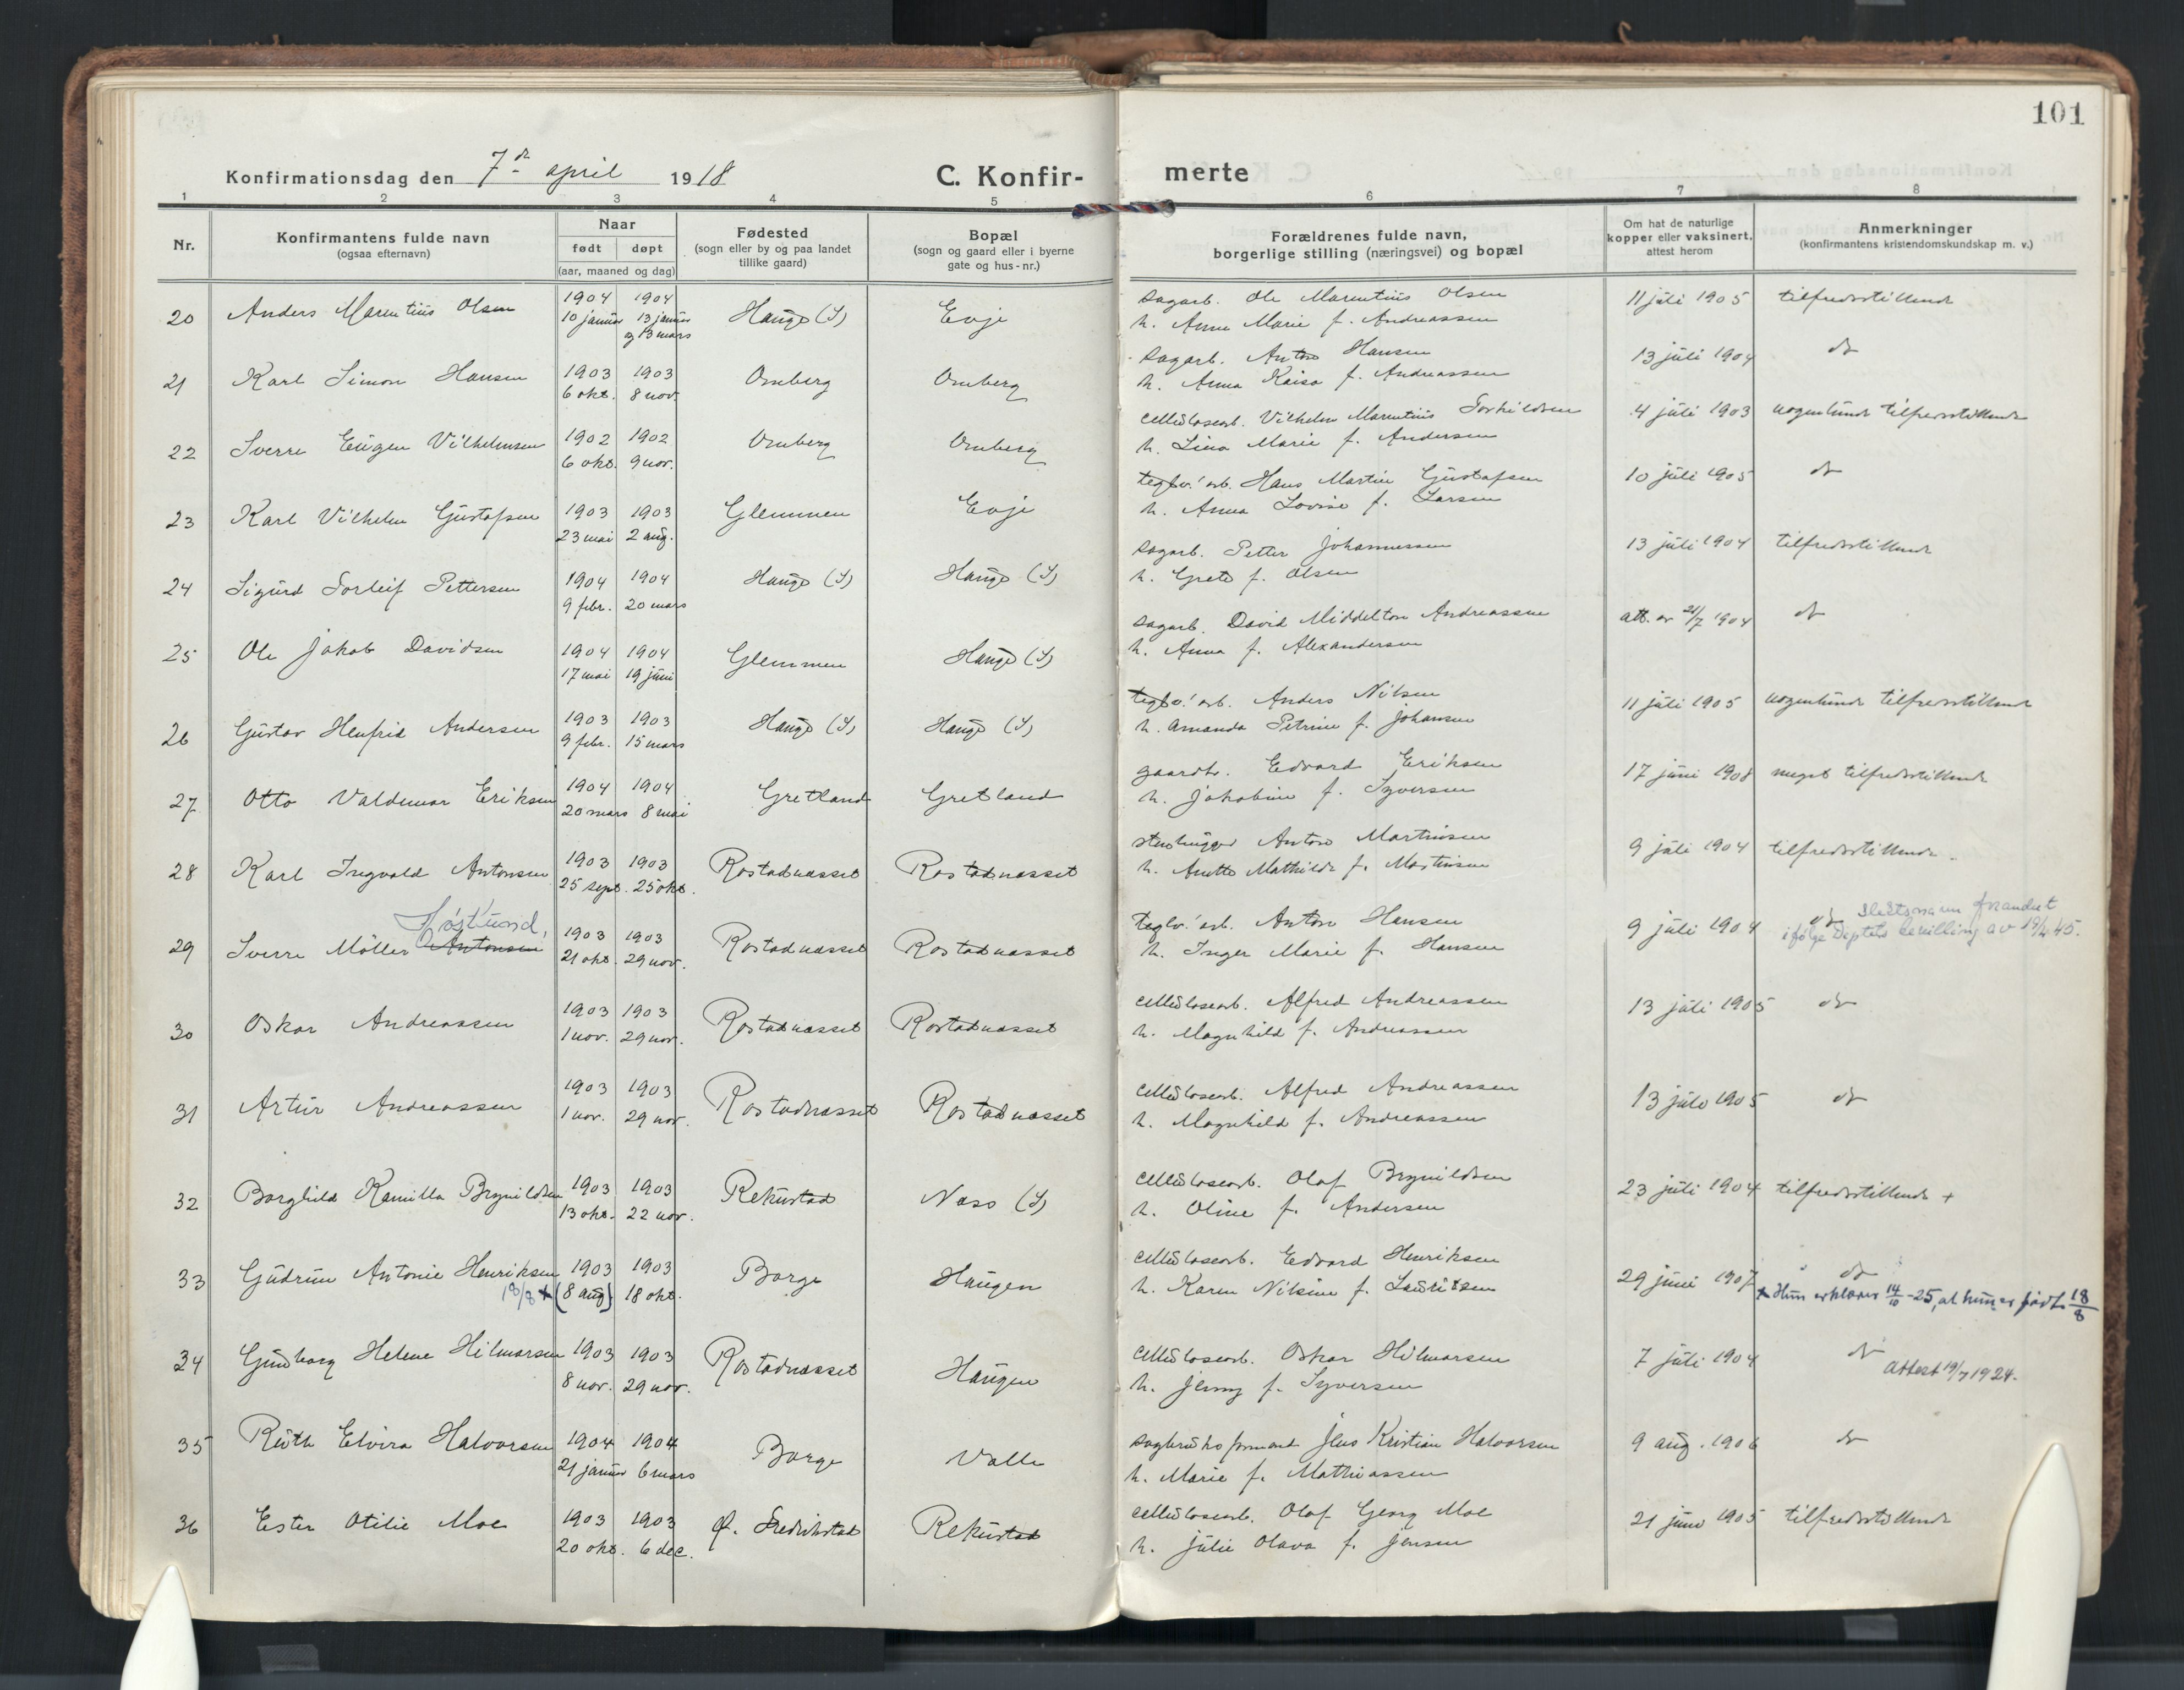 101
Konfirmationsdag den 7de april 1918
C. Konfir-merte
1 2 3 4 5 6 7 8
Nr.
Konfirmantens fulde navn
(ogsaa efternavn)
Naar
født døpt
(aar, maaned og dag)
Fødested
(sogn eller by og paa landet
tillike gaard)
Bopæl
(sogn og gaard eller i byerne
gate og hus-nr.)
Forældrenes fulde navn,
borgerlige stilling (næringsvei) og bopæl
Om hat de naturlige
kopper eller vaksinert,
attest herom
Anmerkninger
(konfirmantens kristendomskundskap m. v.)
20 Anders Marentius Olsen 1904 10 januar 1904 13 januar og 13 mars Hauge (S) Evje
sagarb. Ole Marentius Olsen
h. Anna Marie f. Andreassen
11 juli 1905 tilfredsstillende
21 Karl Simon Hansen 1903 6 okt. 1903 8 nov. Omberg Omberg
sagarb. Anton Hansen
h. Anna Kaisa f. Andreassen
13 juli 1904 do
22 Sverre Eugen Vilhelmsen 1902 6 okt. 1902 9 nov. Omberg Omberg
cellulosearb. Vilhelm Marentius Torkildsen
h. Lina Marie f. Andersen
4 juli 1903 nogenlunde tilfredsstillende
23 Karl Vilhelm Gustafsen 1903 23 mai 1903 2 aug. Glemmen Evje
teglv.arb. Hans Martin Gustafsen
h. Anna Lovise f. Larsen
10 juli 1905 do
24 Sigurd Torleif Pettersen 1904 9 febr. 1904 20 mars Hauge (S) Hauge (S)
sagarb. Petter Johannessen
h. Grete f. Olsen
13 juli 1904 tilfredsstillende
25 Ole Jakob Davidsen 1904 17 mai 1904 19 juni Glemmen Hauge (S)
sagarb. David Middelton Andreassen
h. Anna f. Alexandersen
att. av 21/7 1904 do
26 Gustav Henfrid Andersen 1903 9 febr. 1903 15 mars Hauge (S) Hauge (S)
teglv.arb. Anders Nilsen
h. Amanda Petrine f. Johansen
11 juli 1905 nogenlunde tilfredsstillende
27 Otto Valdemar Eriksen 1904 20 mars 1904 8 mai Gretland Gretland
gaardbr. Edvard Eriksen
h. Jakobine f. Syversen
17 juni 1908 meget tilfredsstillende
28 Karl Ingvald Antonsen 1903 25 sept. 1903 25 okt. Rostadnæsset Rostadnæsset
stenhugger Anton Martinsen
h. Anette Mathilde f. Martinsen
9 juli 1904 tilfredsstillende.
Høglund,
29 Sverre Møller Antonsen 1903 21 okt. 1903 29 nov. Rostadnæsset Rostadnæsset
teglv.arb. Anton Hansen
h. Inger Marie f. Hansen
9 juli 1904 do Slektsnavn forandret
ifølge Deptets bevilling av 19/4 45.
30 Oskar Andreassen 1903 1 nov. 1903 29 nov. Rostadnæsset Rostadnæsset
cellulosearb. Alfred Andreassen
h. Magnhild f. Andreassen
13 juli 1905 do
31 Artur Andreassen 1903 1 nov. 1903 29 nov. Rostadnæsset Rostadnæsset
cellulosearb. Alfred Andreassen
h. Magnhild f. Andreassen
13 juli 1905 do
32 Borghild Kamilla Brynildsen 1903 13 okt. 1903 22 nov. Rekustad Næss (S)
cellulosearb. Olaf Brynildsen
h. Oline f. Andersen
23 juli 1904 tilfredsstillende +
33 Gudrun Antonie Henriksen 18/8 + 1903 (8 aug) 1903 18 okt. Borge Haugen
cellulosearb. Edvard Henriksen
h. Karen Nilsine f. Lauritsen
29 juni 1907 do
+ Hun erklærer 14/10-25, at hun er født 18/8
34 Gunborg Helene Hilmarsen 1903 8 nov. 1903 29 nov. Rostadnæsset Haugen
cellulosearb. Oskar Hilmarsen
h. Jenny f. Syversen
7 juli 1904 do
Attest 19/7 1924.
35 Ruth Elvira Halvorsen 1904 21 januar 1904 6 mars Borge Valle
sagbruksformand Jens Kristian Halvorsen
h. Marie f. Mathiassen
9 aug. 1906 do
36 Ester Otilie Moe 1903 20 okt. 1903 6 dec. Ø. Fredrikstad Rekustad
cellulosearb. Olaf Georg Moe
h. Julie Olava f. Jensen
21 juni 1905 tilfredsstillende